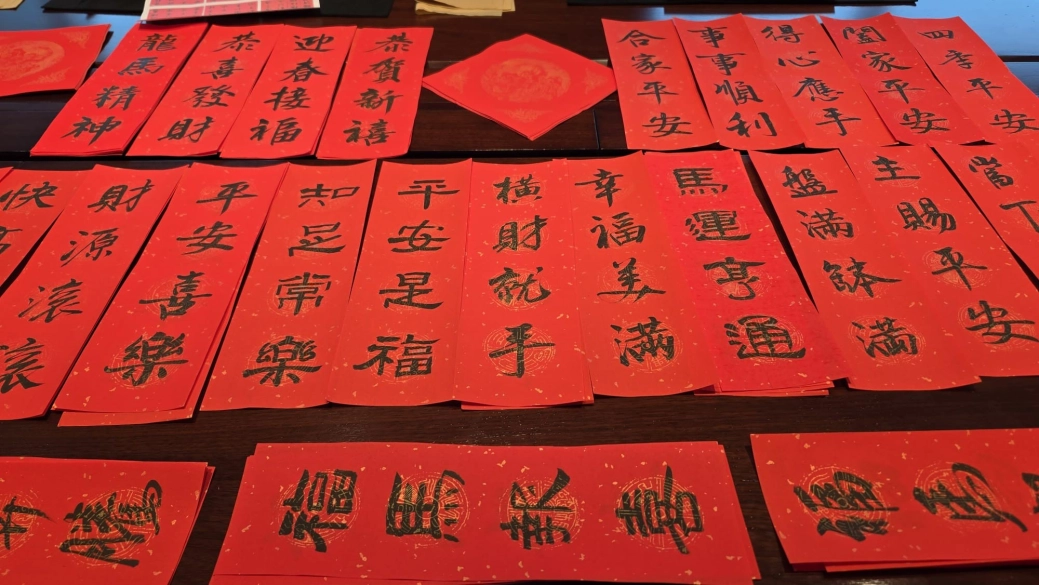 龍馬精神
恭喜發財
迎春接福
恭賀新禧
合家平安
事事順利
得心應手
闔家平安
四季平安
快高
財源滾滾
平安喜樂
知足常樂
平安是福
橫財就手
幸福美滿
馬運亨通
盤滿缽滿
主賜平安
當下
福馬報喜
福馬